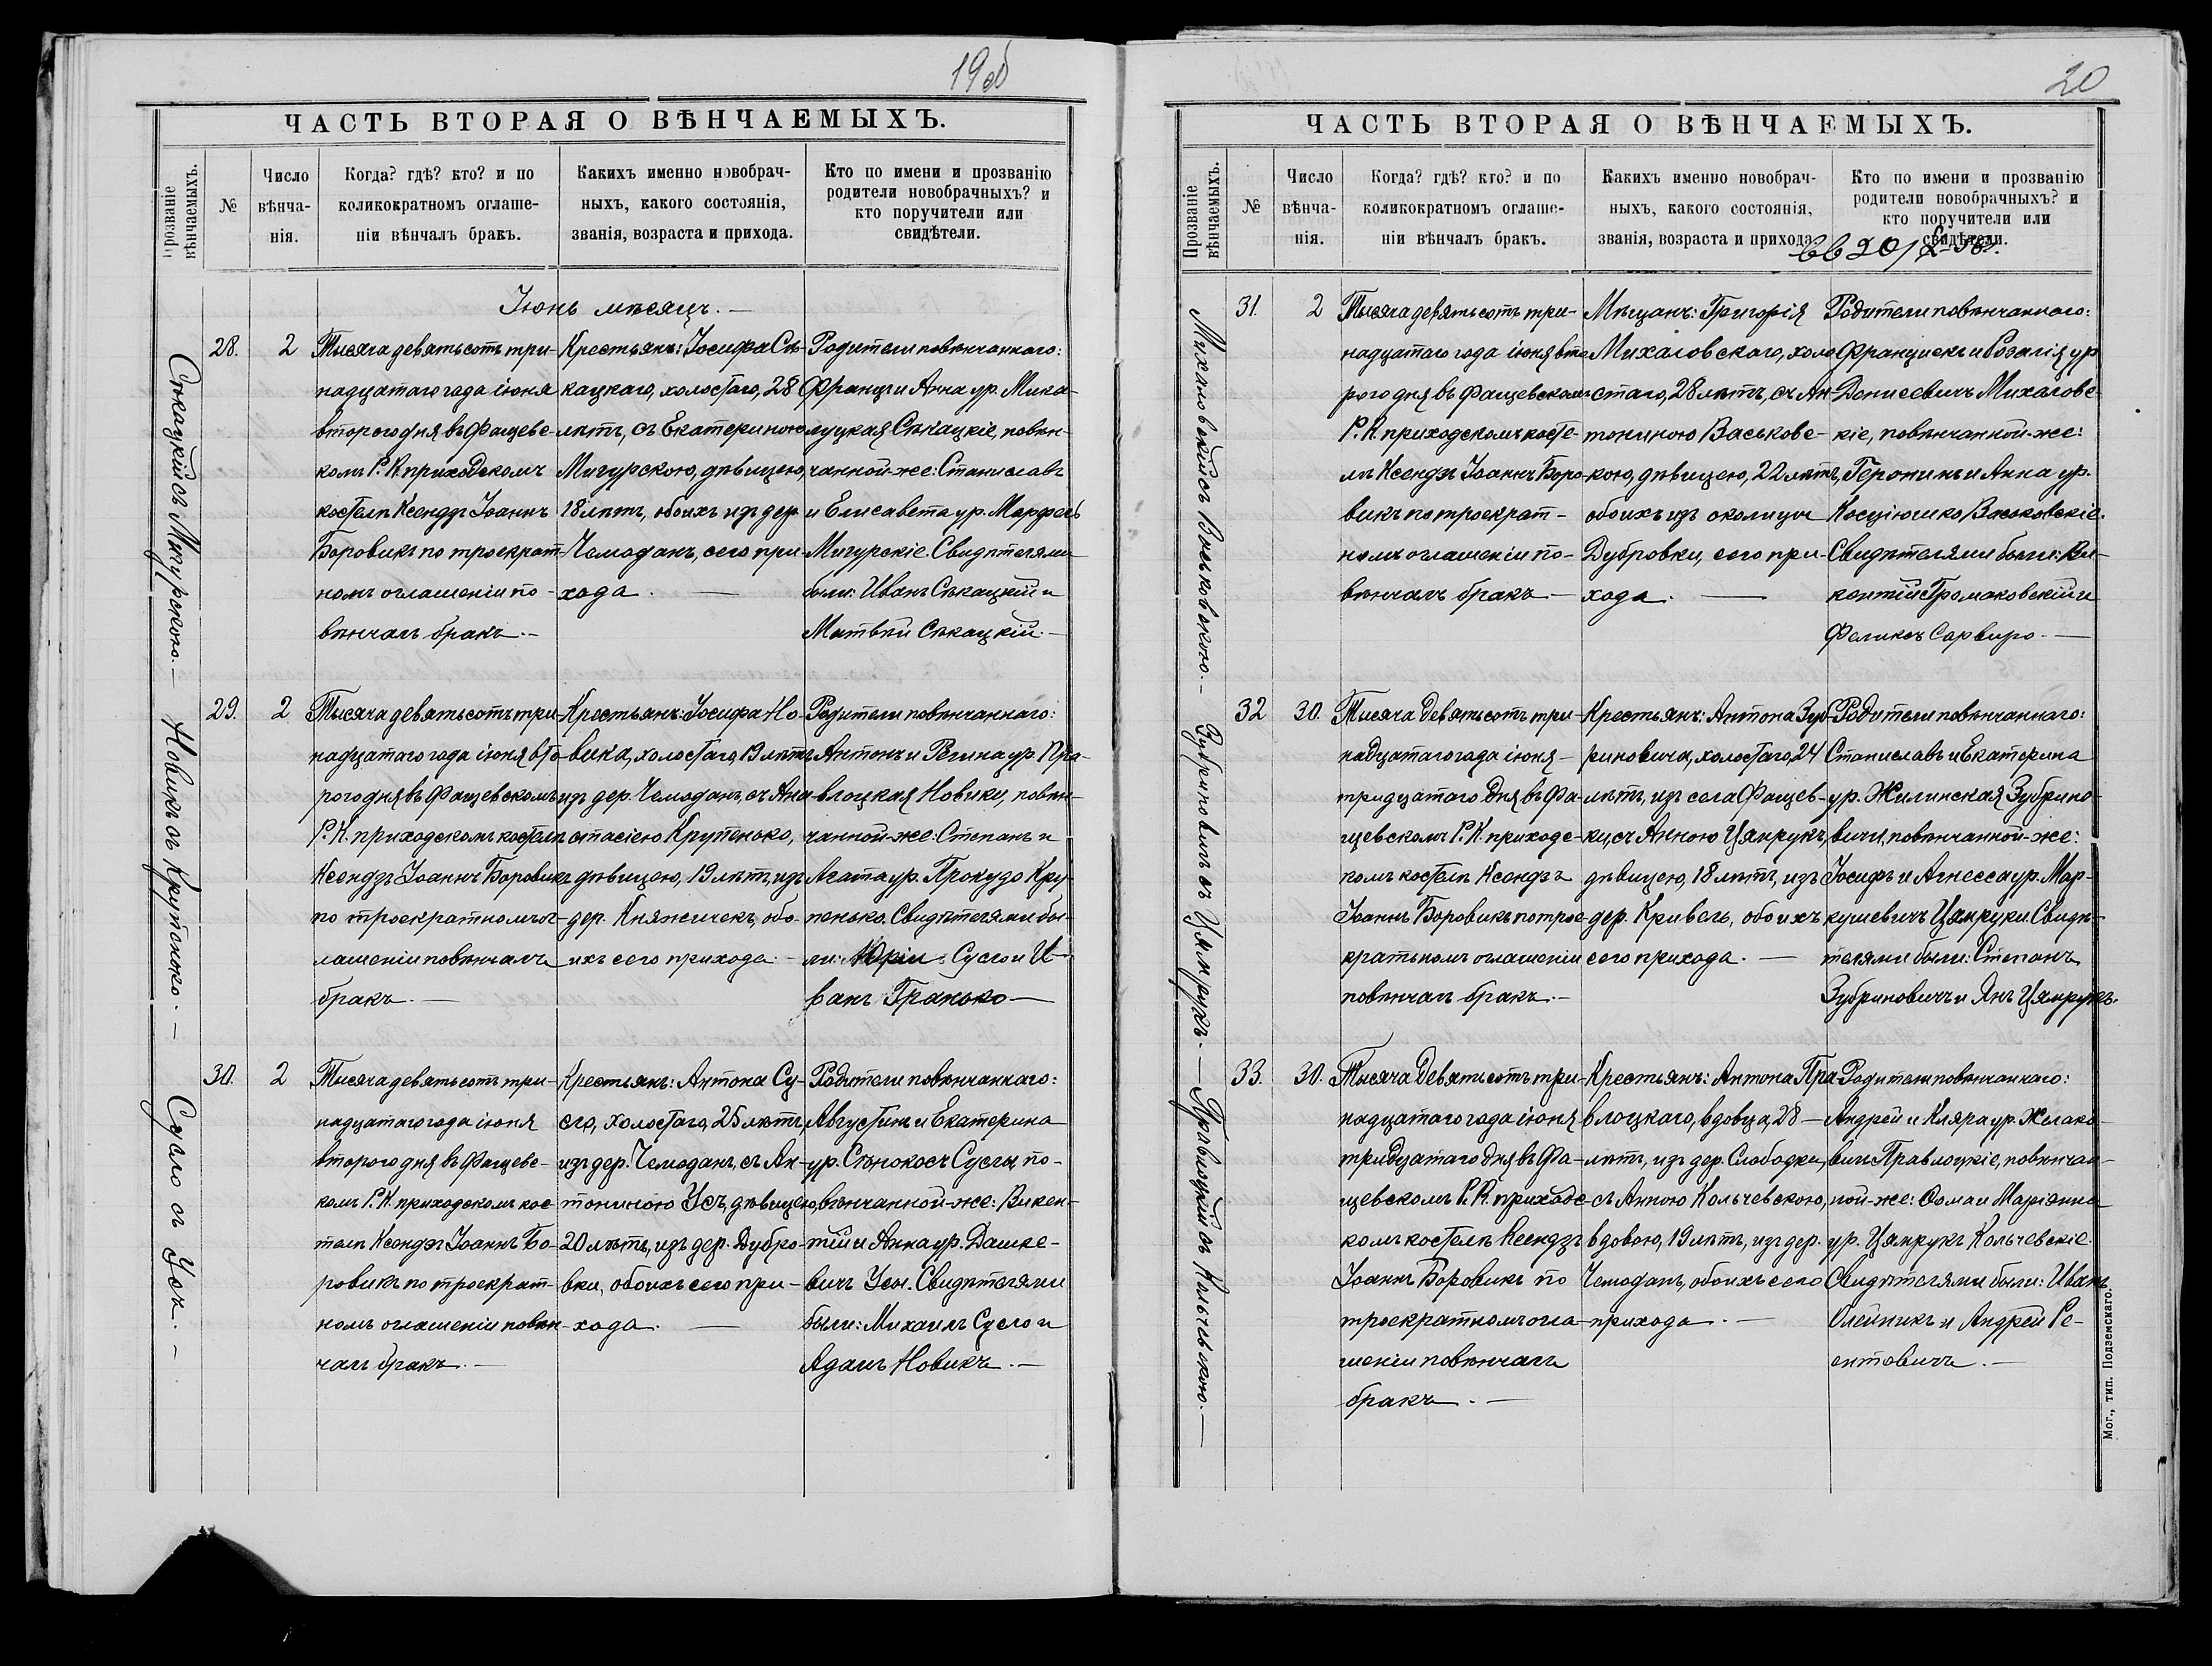 19об
ЧАСТЬ ВТОРАЯ О ВѢНЧАЕМЫХЪ.
Прозваніе вѣнчаемыхъ.
№
Число вѣнча-нія.
Когда? гдѣ? кто? и по
коликократномъ оглаше-
ніи вѣнчалъ бракъ.
Какихъ именно новобрач-
ныхъ, какого состоянія,
званія, возраста и прихода.
Кто по имени и прозванію
родители новобрачныхъ? и
кто поручители или
свидѣтели.
Іюнь мѣсяцъ.—
Сѣкацкій съ Мигурскою.—
28.
2
Тысяча девятьсотъ три-
надцатаго года іюня
второго дня въ Фащевс-
комъ Р. К. приходскомъ
костелѣ Ксендзъ Іоаннъ
Боровикъ по троекрат-
номъ оглашеніи по-
вѣнчалъ бракъ.—
Крестьянъ: Іосифа Сѣ-
кацкаго, холостаго, 28
лѣтъ, съ Екатериною
Мигурскою, дѣвицею,
18 лѣтъ, обоихъ изъ дер.
Чемоданъ, сего при-
хода.—
Родители повѣнчаннаго:
Францъ и Анна ур. Мика-
луцкая Сѣкацкіе, повѣн-
чанной-же: Станиславъ
и Елисавета ур. Марфель
Мигурскіе. Свидѣтелями
были: Иванъ Сѣкацкій и
Матвѣй Сѣкацкій.—
Новикъ съ Крупенько.—
29.
2
Тысяча девятьсотъ три-
надцатаго года іюня вто-
рого дня въ Фащевскомъ
Р. К. приходскомъ костелѣ
Ксендзъ Іоаннъ Боровикъ
по троекратномъ ог-
лашеніи повѣнчалъ
бракъ.—
Крестьянъ: Іосифа Но-
вика, холостаго, 19 лѣтъ
изъ дер. Чемоданъ, съ Ана-
стасіею Крупенько,
дѣвицею, 19 лѣтъ, изъ
дер. Княжичекъ, обо-
ихъ сего прихода.—
Родители повѣнчаннаго:
Антонъ и Регина ур. Пра-
влоцкая Новики, повѣн-
чанной-же: Степанъ и
Агата ур. Прокудо Кру-
пенько. Свидѣтелями бы-
ли: Юрій Сусло и И-
ванъ Гранько—
Сусло съ Усъ.—
30.
2
Тысяча девятьсотъ три-
надцатаго года іюня
второго дня въ Фащевс-
комъ Р. К. приходскомъ кос-
телѣ Ксендзъ Іоаннъ Бо-
ровикъ по троекрат-
номъ оглашеніи повѣн-
чалъ бракъ.—
Крестьянъ: Антона Су-
сло, холостаго, 25 лѣтъ,
изъ дер. Чемоданъ, съ Ан-
тониною Усъ, дѣвицею,
20 лѣтъ, изъ дер. Дубро-
вки, обоихъ сего при-
хода.—
Родители повѣнчаннаго:
Августинъ и Екатерина
ур. Сѣнокосъ Суслы, по-
вѣнчанной-же: Викен-
тій и Анна ур. Дашке-
вичъ Усы. Свидѣтелями
были: Михаилъ Сусло и
Адамъ Новикъ.—
20
ЧАСТЬ ВТОРАЯ О ВѢНЧАЕМЫХЪ.
Прозваніе вѣнчаемыхъ.
№
Число вѣнча-нія.
Когда? гдѣ? кто? и по
коликократномъ оглаше-
ніи вѣнчалъ бракъ.
Какихъ именно новобрач-
ныхъ, какого состоянія,
званія, возраста и прихода.
Кто по имени и прозванію
родители новобрачныхъ? и
кто поручители или
свидѣтели.
Михаловскій съ Васьковскою.—
31.
2
Тысяча девятьсотъ три-
надцатаго года іюня вто-
рого дня въ Фащевскомъ
Р. К. приходскомъ косте-
лѣ Ксендзъ Іоаннъ Боро-
викъ по троекрат-
номъ оглашеніи по-
вѣнчалъ бракъ.—
Мѣщанъ: Григорія
Михаловскаго, холо-
стаго, 28 лѣтъ, съ Ан-
тониною Васьковс-
кою, дѣвицею, 22 лѣтъ,
обоихъ изъ околицы
Дубровки, сего при-
хода.—
Родители повѣнчаннаго:
Францискъ и Розалія ур.
Денисевичъ Михаловс-
кіе, повѣнчанной-же:
Геронимъ и Анна ур.
Косцюшко Васьковскіе.
Свидѣтелями были: Ви-
кентій Громаковскій и
Феликсъ Сарвиро.—
Зубриновичъ съ Цямрукъ.—
32
30.
Тысяча девятьсотъ три-
надцатаго года іюня—
тридцатаго дня въ Фа-
щевскомъ Р. К. приходс-
комъ костелѣ Ксендзъ
Іоаннъ Боровикъ по трое-
кратномъ оглашеніи
повѣнчалъ бракъ.—
Крестьянъ: Антона Зуб-
риновича, холостаго, 24
лѣтъ, изъ села Фащев-
ки, съ Анною Цямрукъ,
дѣвицею, 18 лѣтъ, изъ
дер. Кривель, обоихъ
сего прихода.—
Родители повѣнчаннаго:
Станиславъ и Екатерина
ур. Жилинская Зубрино-
вичи, повѣнчанной-же:
Іосифъ и Агнесса ур. Мар-
кушевичъ Цямруки. Свидѣ-
телями были: Степанъ
Зубриновичъ и Янъ Цямрукъ.
Правлоцкій съ Кольчевскою.—
33.
30.
Тысяча девятьсотъ три-
надцатаго года іюня
тридцатаго дня въ Фа-
щевскомъ Р. К. приходс-
комъ костелѣ Ксендзъ
Іоаннъ Боровикъ по
троекратномъ огла-
шеніи повѣнчалъ
бракъ.—
Крестьянъ: Антона Пра-
влоцкаго, вдовца, 28—
лѣтъ, изъ дер. Слободки,
съ Анною Кольчевскою,
вдовою, 19 лѣтъ, изъ дер.
Чемоданъ, обоихъ сего
прихода.—
Родители повѣнчаннаго:
Андрей и Клара ур. Жлако-
вичъ Правлоцкіе, повѣнчан-
ной-же: Ѳома и Маріанна
ур. Цямрукъ Кольчевскіе.
Свидѣтелями были: Иванъ
Олейникъ и Андрей Ре-
ентовичъ.—
Мог., тип. Подземскаго.